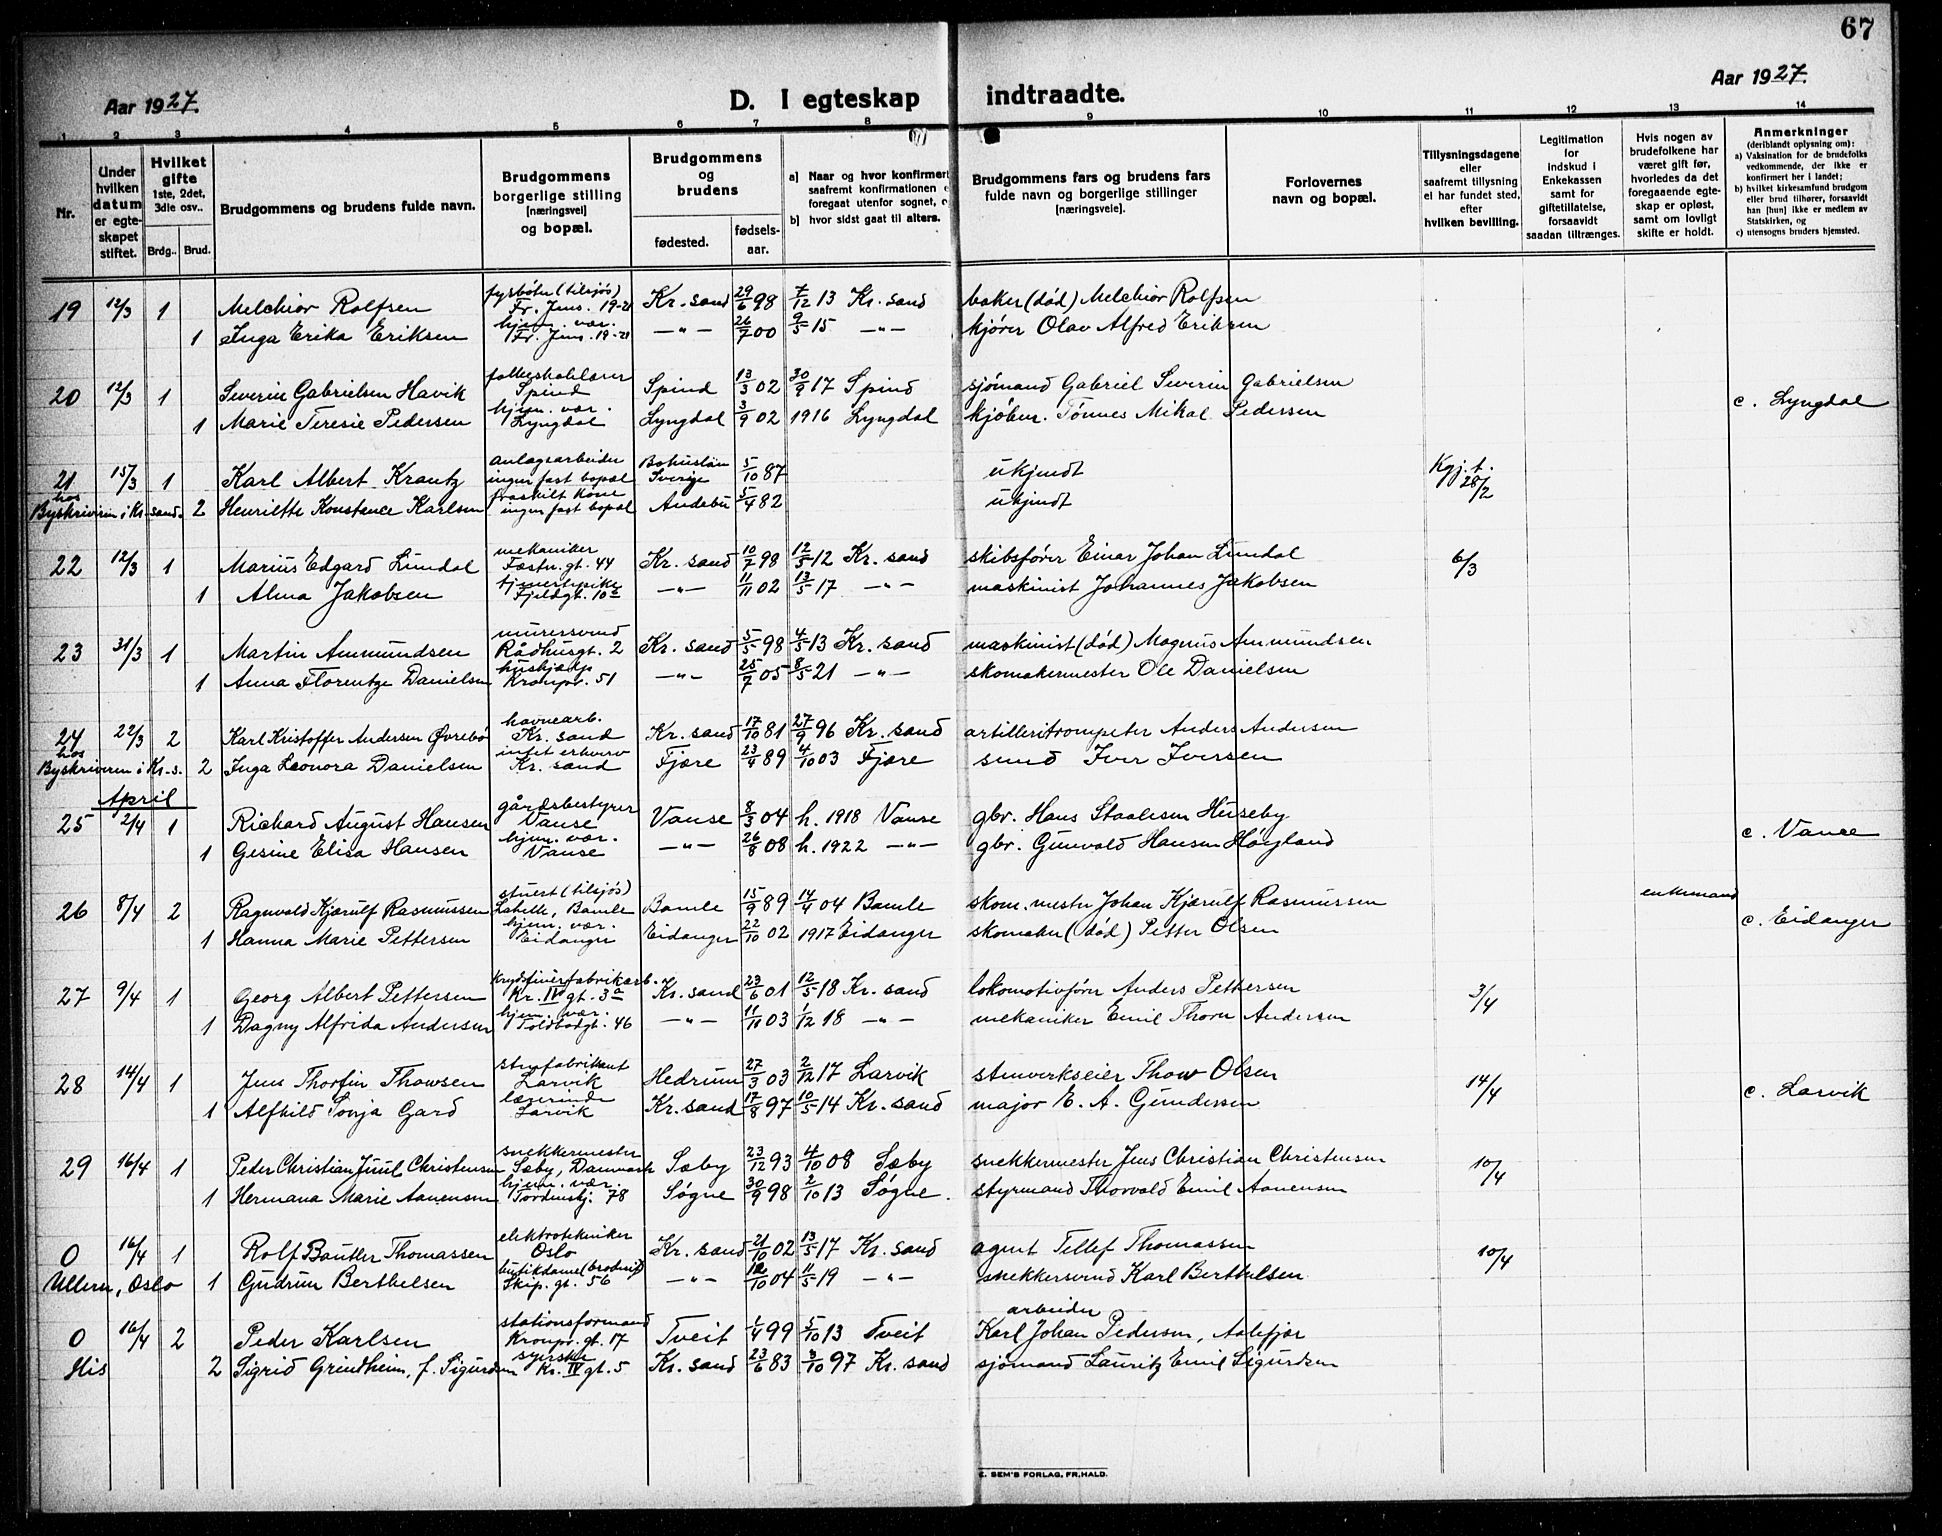 67
Aar 1927.
D. I egteskap indtraadte.
Aar 1927.
1 2 3 4 5 6 7 8 9 10 11 12 13 14
Nr.
Under hvilken datum er egteskapet stiftet.
Hvilket gifte 1ste, 2det, 3die osv..
Brdg.. Brud.
Brudgommens og brudens fulde navn.
Brudgommens borgerlige stilling [næringsvei] og bopæl.
Brudgommens og brudens
fødested.
fødselsaar.
a) Naar og hvor konfirmert
saafremt konfirmationen
foregaat utenfor sognet,
b) hvor sidst gaat til alters.
Brudgommens fars og brudens fars
fulde navn og borgerlige stillinger
[næringsveie].
Forlovernes
navn og bopæl.
Tillysningsdagene
eller
saafremt tillysning
ei har fundet sted,
efter
hvilken bevilling.
Legitimation
for
indskud i
Enkekassen
samt for
giftetillatelse,
forsaavidt
saadan tiltrænges.
Hvis nogen av
brudefolkene har
været gift før,
hvorledes da det
foregaaende egteskap er opløst,
samt om lovligt
skifte er holdt.
Anmerkninger
(deriblandt oplysning om):
a) Vaksination for de brudefolks
vedkommende, der ikke er
konfirmert her i landet;
b) hvilket kirkesamfund brudgom
eller brud tilhører, forsaavidt
han [hun] ikke er medlem av
Statskirken, og
c) utensogns bruders hjemsted.
19 12/3 1 Melchior Rolfsen fyrbøter (tilsjøs) Fr. Jms. 19-21 Kr. sand 29/6 98 7/12 13 Kr. sand baker (død) Melchior Rolfsen
1 Inga Erika Eriksen hjem. vær. Fr. Jms. 19-21 —"— 26/7 00 9/5 15 —"— kjører Olav Alfred Eriksen
20 12/3 1 Severin Gabrielsen Havik folkeskolelærer Spind Spind 13/3 02 30/9 17 Spind sjømand Gabriel Severin Gabrielsen
1 Marie Teresie Pedersen hjem. vær. Lyngdal Lyngdal 3/9 02 1916 Lyngdal kjøbm. Tønnes Mikal Pedersen c. Lyngdal
21 15/3 1 Karl Albert Krantz anlægsarbeider ingen fast bopæl Bohuslän Sverige 5/10 87 ukjendt Kgj. t. 28/2
hos Byskriveren i Kr. sand. 2 Henriette Konstance Karlsen fraskilt kone ingen fast bopæl Andebu 5/4 82 ukjendt
22 12/3 1 Marius Edgard Lundal mekaniker Fæstn. gt. 44 Kr. sand 10/7 98 12/5 12 Kr. sand skibsfører Einar Johan Lundal 6/3
1 Alma Jakobsen tjenestepike Fjeldgt. 10 —"— 11/11 02 13/5 17 —"— maskinist Johannes Jakobsen
23 31/3 1 Martin Ammundsen murersvend Rådhusgt. 2 Kr. sand 5/5 98 4/5 13 Kr. sand maskinist (død) Magnus Ammundsen
1 Anna Florentze Danielsen hushjælp Kronpr. 51 —"— 25/7 05 8/5 21 —"— skomakermester Ole Danielsen
24 22/3 2 Karl Kristoffer Andersen Øvrebø havnearb. Kr. sand Kr. sand 17/10 81 27/9 96 Kr. sand artilleritrompeter Anders Andersen
hos Byskriveren i Kr.s. 2 Inga Leonora Danielsen intet erhverv Kr. sand Fjære 23/4 89 4/10 03 Fjære smed Iver Iversen
April
25 2/4 1 Richard August Hansen gårdsbestyrer Vanse Vanse 8/3 04 h. 1918 Vanse gbr. Hans Staalesen Huseby
1 Gesine Elisa Hansen hjem. vær. Vanse —"— 26/8 08 h. 1922 —"— gbr. Gunvald Hansen Høyland c. Vanse
26 8/4 2 Ragnvald Kjærulf Rasmussen stuert (tilsjøs) Labette, Bamle Bamle 15/9 89 14/4 04 Bamle skom.mester Johan Kjærulf Rasmussen enkemand
1 Hanna Marie Pettersen hjem. vær. Eidanger Eidanger 22/10 02 1917 Eidanger skomaker (død) Petter Olsen c. Eidanger
27 9/4 1 Georg Albert Pettersen krydsfinerfabrikarb. Kr. IV gt. 3a Kr. sand 23/6 01 12/5 18 Kr. sand lokomotivfører Anders Pettersen 3/4
1 Dagny Alfrida Andersen hjem. vær. Toldbodgt. 46 —"— 11/11 03 1/12 18 —"— mekaniker Emil Thorn Andersen
28 14/4 1 Jens Thorfin Thowsen stenfabrikant Larvik Hedrum 27/3 03 2/12 17 Larvik stenverkseier Thow Olsen 14/4
1 Alfhild Sonja Gard lærerinde Larvik Kr. sand 17/8 97 10/5 14 Kr. sand major E. A. Gundersen c. Larvik
29 16/4 1 Peder Christian Juul Christensen snekkermester Sæby, Danmark Sæby 23/12 93 4/10 08 Sæby snekkermester Jens Christian Christensen 10/4
1 Hermana Marie Aanensen hjem. vær. Tordenskj. 78 Søgne 30/9 98 2/10 13 Søgne. styrmand Thorvald Emil Aanensen
0 16/4 1 Rolf Bautler Thomassen elektrotekniker Oslo Kr. sand 21/10 02 13/5 17 Kr. sand agent Tellef Thomassen 10/4
Ullern, Oslo 1 Gudrun Berthelsen butikdame (broderi) Skip. gt. 56 —"— 12/10 04 11/5 19 —"— snekkersvend Karl Berthelsen
0 16/4 2 Peder Karlsen stationsformand Kronpr. gt. 17 Tveit 1/4 99 5/10 13 Tveit arbeider Karl Johan Pedersen, Aalefjær
His 2 Sigrid Grindheim, f. Sigurdsen syerske Kr. IV gt. 5 Kr. sand 23/6 83 3/10 97 Kr. sand sjømand Lauritz Emil Sigurdsen
E. SEM'S FORLAG, FR.HALD.